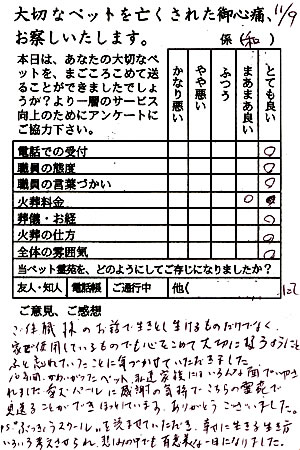 大切なペットを亡くされた御心痛、
お察しいたします。
11/9
係(和)
本日は、あなたの大切なペットを、まごころこめて送ることができましたでしょうか?より一層のサービス向上のためにアンケートにご協力下さい。
かなり悪い
やや悪い
ふつう
まあまあ良い
とても良い
電話での受付
職員の態度
職員の言葉づかい
火葬料金
葬儀・お経
火葬の仕方
全体の雰囲気
当ペット霊苑を、どのようにしてご存じになりましたか?
友人・知人 電話帳 ご通行中 他(
ご意見、ご感想
ご住職様のお話で生きとし生けるものだけでなく、
家で使用しているものでも心をこめて大切に扱うようにと
ふと忘れていたことに気づかせていただきました。
かわいがったペット、私達家族にはいろんな面で癒やされました
感謝の気持でこちらの霊苑で
見送ることができほっとしています。ありがとうございました。
PS
させていただき、幸せに生きる生き方
いろいろ考えさせられ、悲しみの中でも有意義な一日になりました。